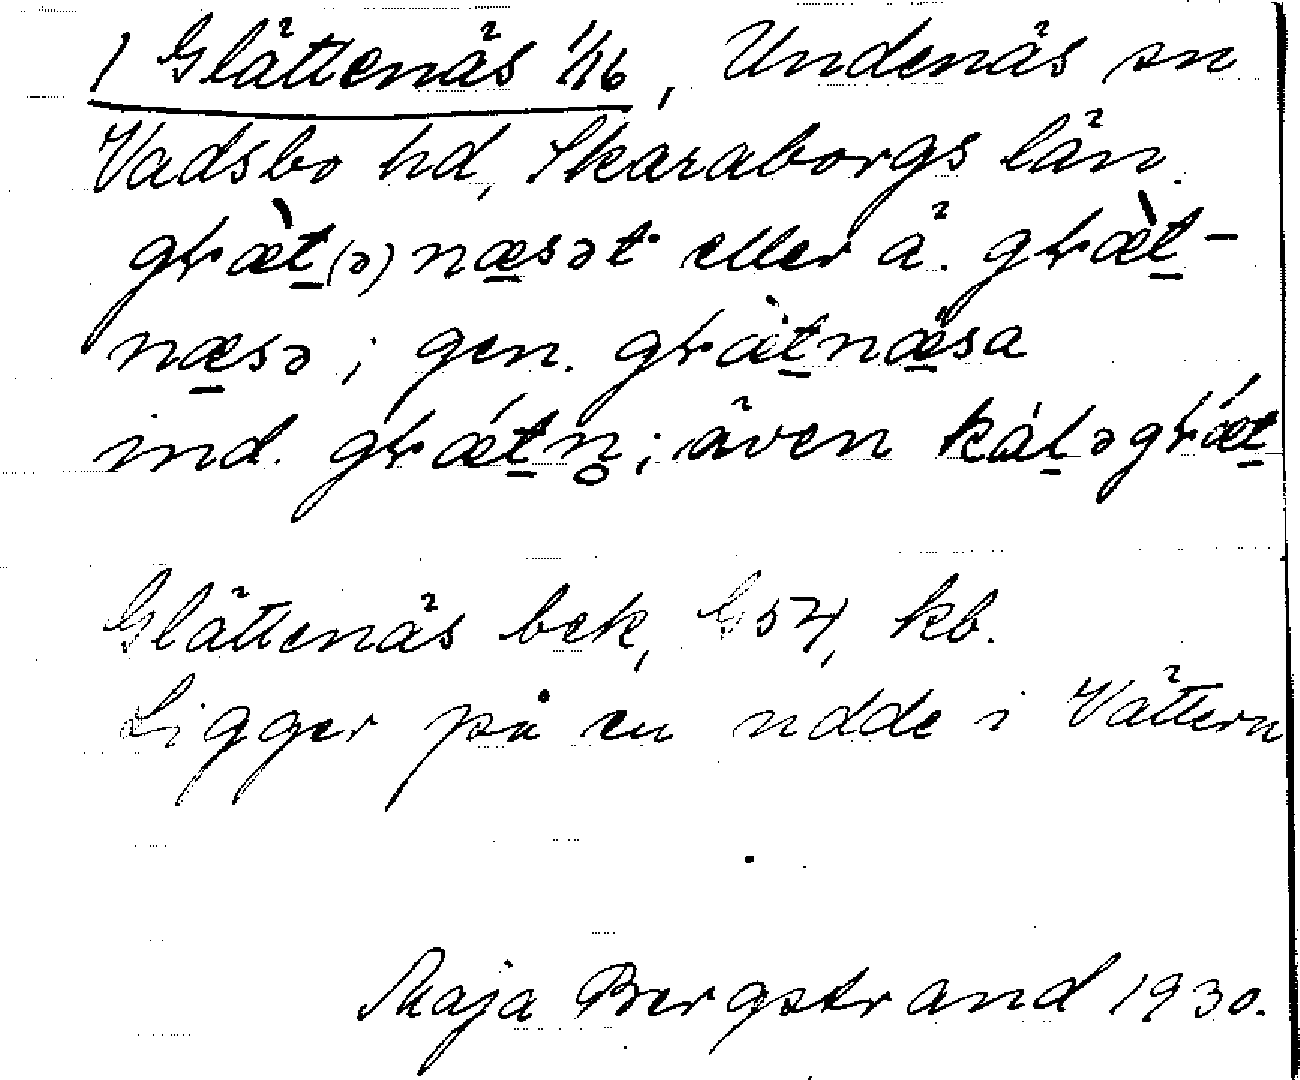 1 Glättenäs 1/16, Undenäs sn
Vadsbo hd, Skaraborgs län.
græ̀t(ə)næsət eller ä. græ̀t-
næsə; gen. græ̀tnæsa
ind. grǽtn̥; även káləgrǽt
Glättenäs bek, G 54, kb.
Ligger på en udde i Vättern
Maja Bergstrand 1930.